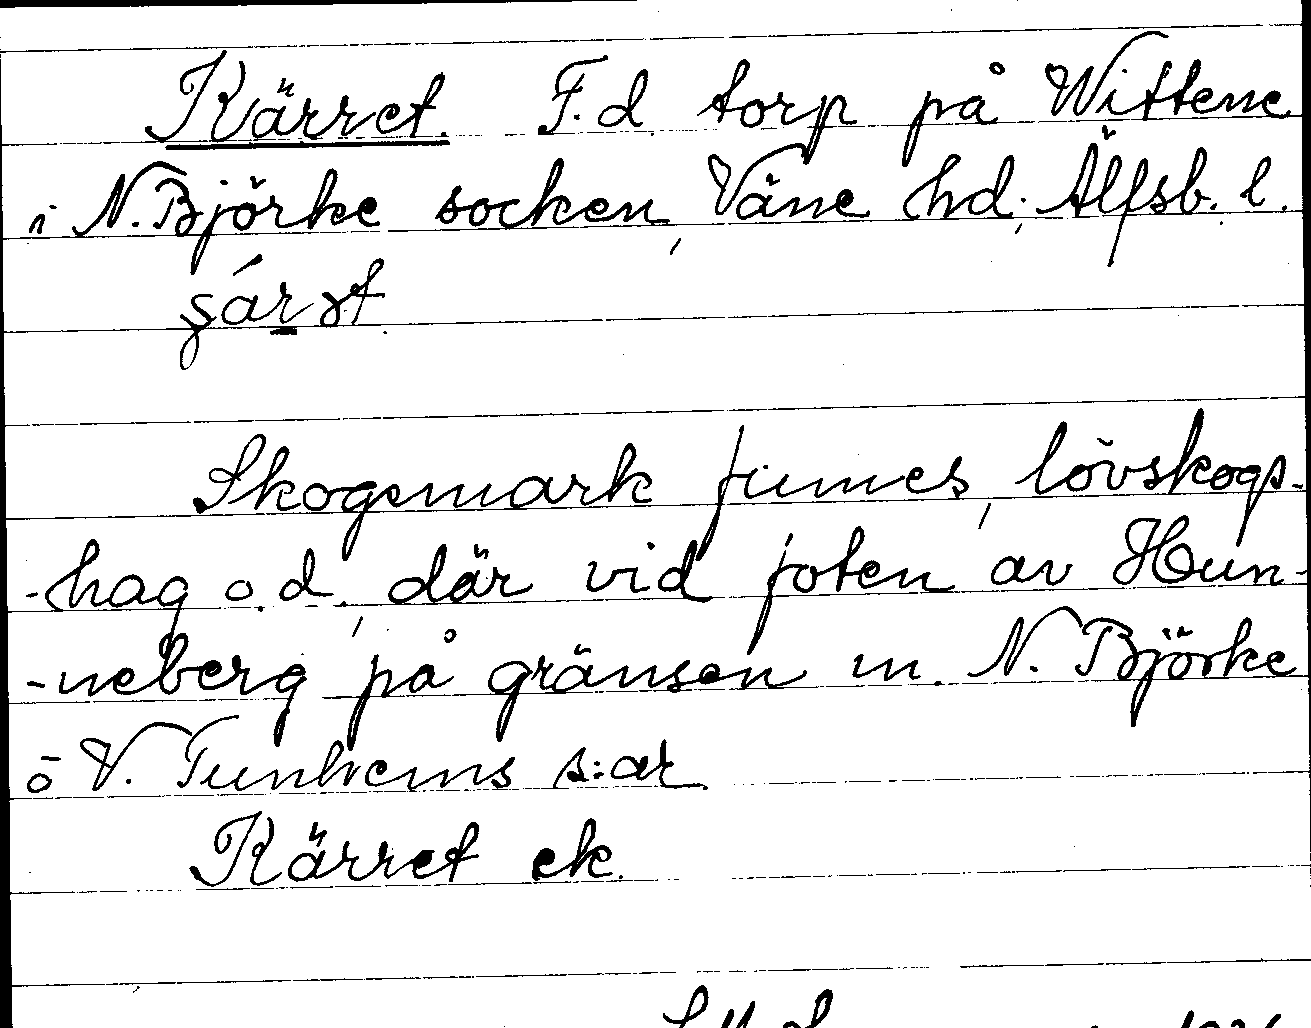 Kärret. F.d. torp på Wittene
i N. Björke socken, Väne hd; Älfsb. l.
Skogsmark finnes, lövskogs-
-hag o.d., där vid foten av Hun-
-neberg på gränsen m. N. Björke
o V. Tunhems s:ar.
Kärret ek.